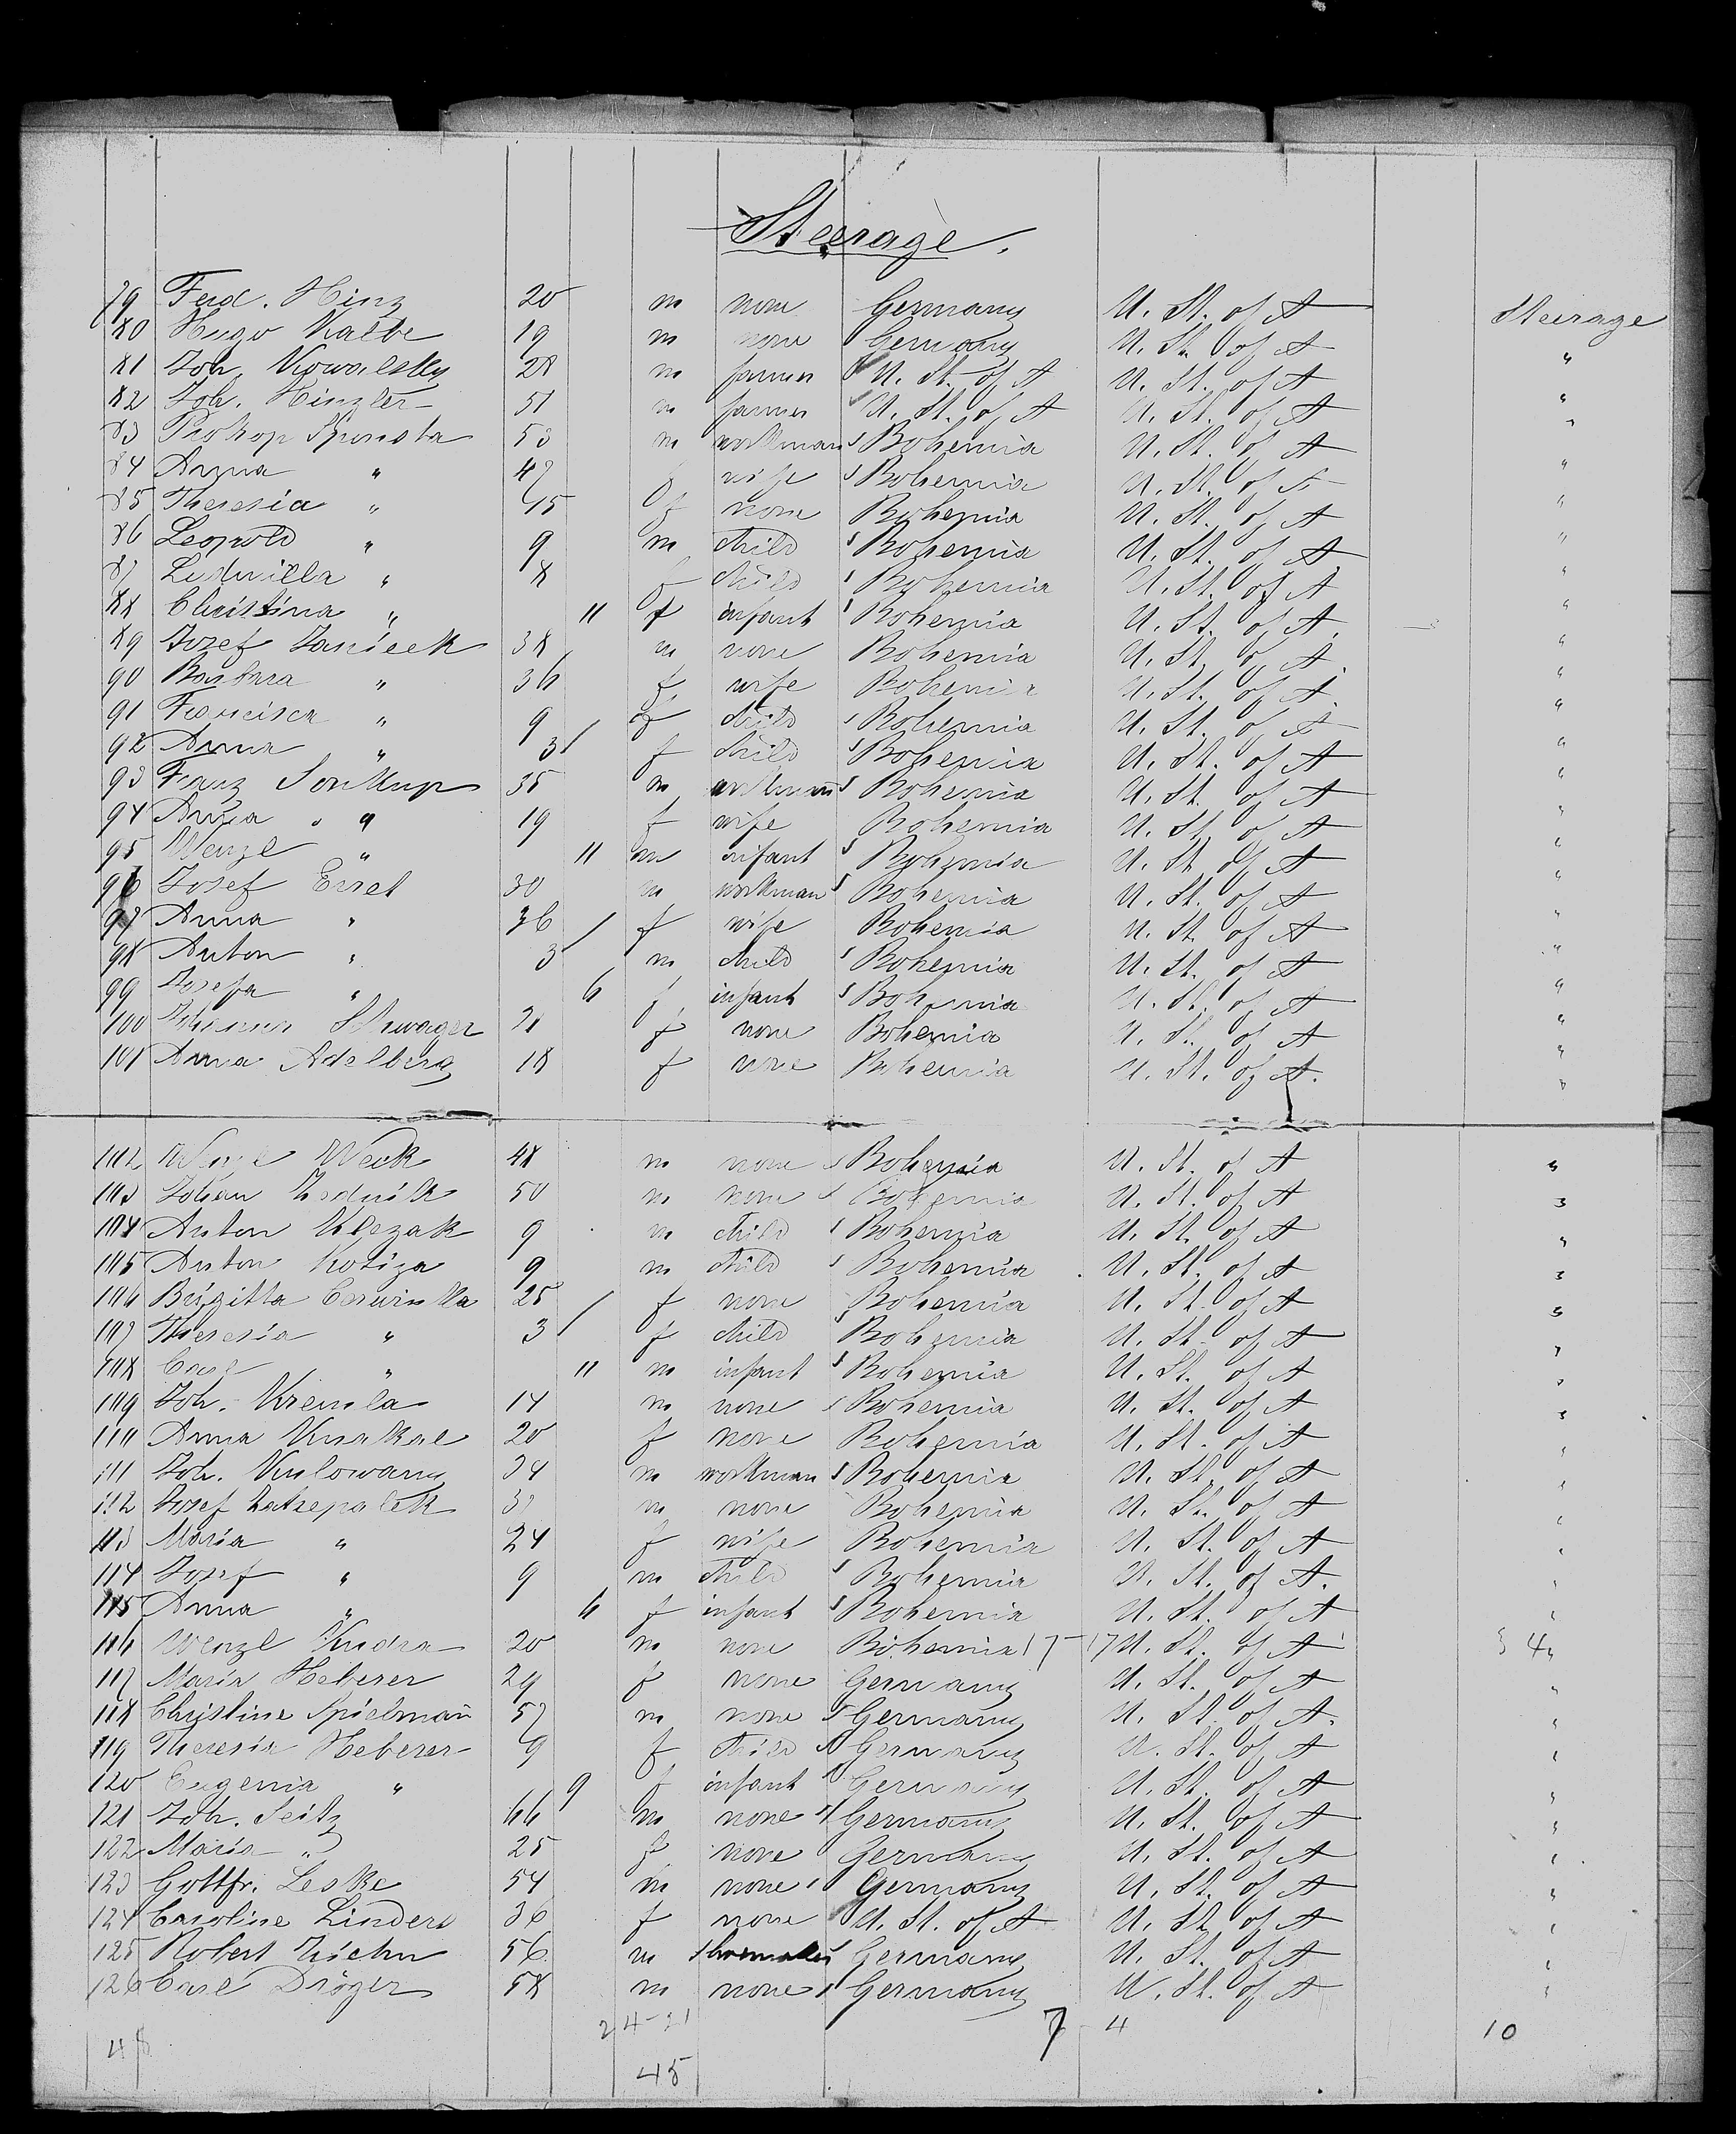 Steerage.
79 Ferd. Hinz 20 m none Germany U. St. of A Steerage
80 Hugo Kalbe 19 m none Germany U. St. of A "
81 Joh. Kowalsky 28 m farmer U. St. of A U. St. of A "
82 Joh. Hinzler 51 m farmer U. St. of A U. St. of A "
83 Prokop Sponsta 53 m workman Bohemia U. St. of A "
84 Anna " 47 f wife Bohemia U. St. of A "
85 Theresia " 45 f none Bohemia U. St. of A "
86 Leopold " 9 m child Bohemia U. St. of A "
87 Ludmilla " 8 f child Bohemia U. St. of A "
88 Christina " 11 f infant Bohemia U. St. of A "
89 Josef Janicek 38 m none Bohemia U. St. of A "
90 Barbara " 36 f wife Bohemia U. St. of A "
91 Francisca " 9 f child Bohemia U. St. of A "
92 Anna " 3 f child Bohemia U. St. of A "
93 Franz Soukup 35 m workman Bohemia U. St. of A "
94 Anna " 19 f wife Bohemia U. St. of A "
95 Wenzl " 11 m infant Bohemia U. St. of A "
96 Josef 30 m workman Bohemia U. St. of A "
97 Anna " 36 f wife Bohemia U. St. of A "
98 Anton " 3 m child Bohemia U. St. of A "
99 Josefa " 6 f infant Bohemia U. St. of A "
100 Johanna Schwager 21 f none Bohemia U. St. of A "
101 Anna Adelberg 18 f none Bohemia U. St. of A. "
102 Wenzl Week 48 m none Bohemia U. St. of A "
103 Johan Hodnik 50 m none Bohemia U. St. of A "
104 Anton Klezak 9 m child Bohemia U. St. of A "
105 Anton Kotiza 9 m child Bohemia U. St. of A "
106 Brigitta Cerwinka 25 f none Bohemia U. St. of A "
107 Theresia " 3 f child Bohemia U. St. of A "
108 Carl " 11 m infant Bohemia U. St. of A "
109 Joh. Kremla 14 m none Bohemia U. St. of A "
110 Anna Kuakal 20 f none Bohemia U. St. of A "
111 Joh. Kulowany 34 m workman Bohemia U. St. of A "
112 Josef Zatrepalek m none Bohemia U. St. of A "
113 Maria " 24 f wife Bohemia U. St. of A "
114 Josef " 9 m child Bohemia U. St. of A. "
115 Anna " 6 f infant Bohemia U. St. of A "
116 Wenzl Kudra 20 m none Bohemia 17-17 U. St. of A 4 "
117 Maria Heberer 29 f none Germany U. St. of A "
118 Christine Spielman 57 m none Germany U. St. of A. "
119 Theresia Heberer 9 f child Germany U. St. of A "
120 Eugenia " 9 f infant Germany U. St. of A "
121 Joh. Seitz 66 m none Germany U. St. of A "
122 Maria " 25 f none Germany U. St. of A "
123 Gottfr. Leske 54 m none Germany U. St. of A "
124 Caroline Linders 36 f none U. St. of A U. St. of A "
125 Robert 56 m Shoemaker Germany U. St. of A "
126 Carl Dröger 58 m none Germany U. St. of A "
24-21 7 4 10
48 45